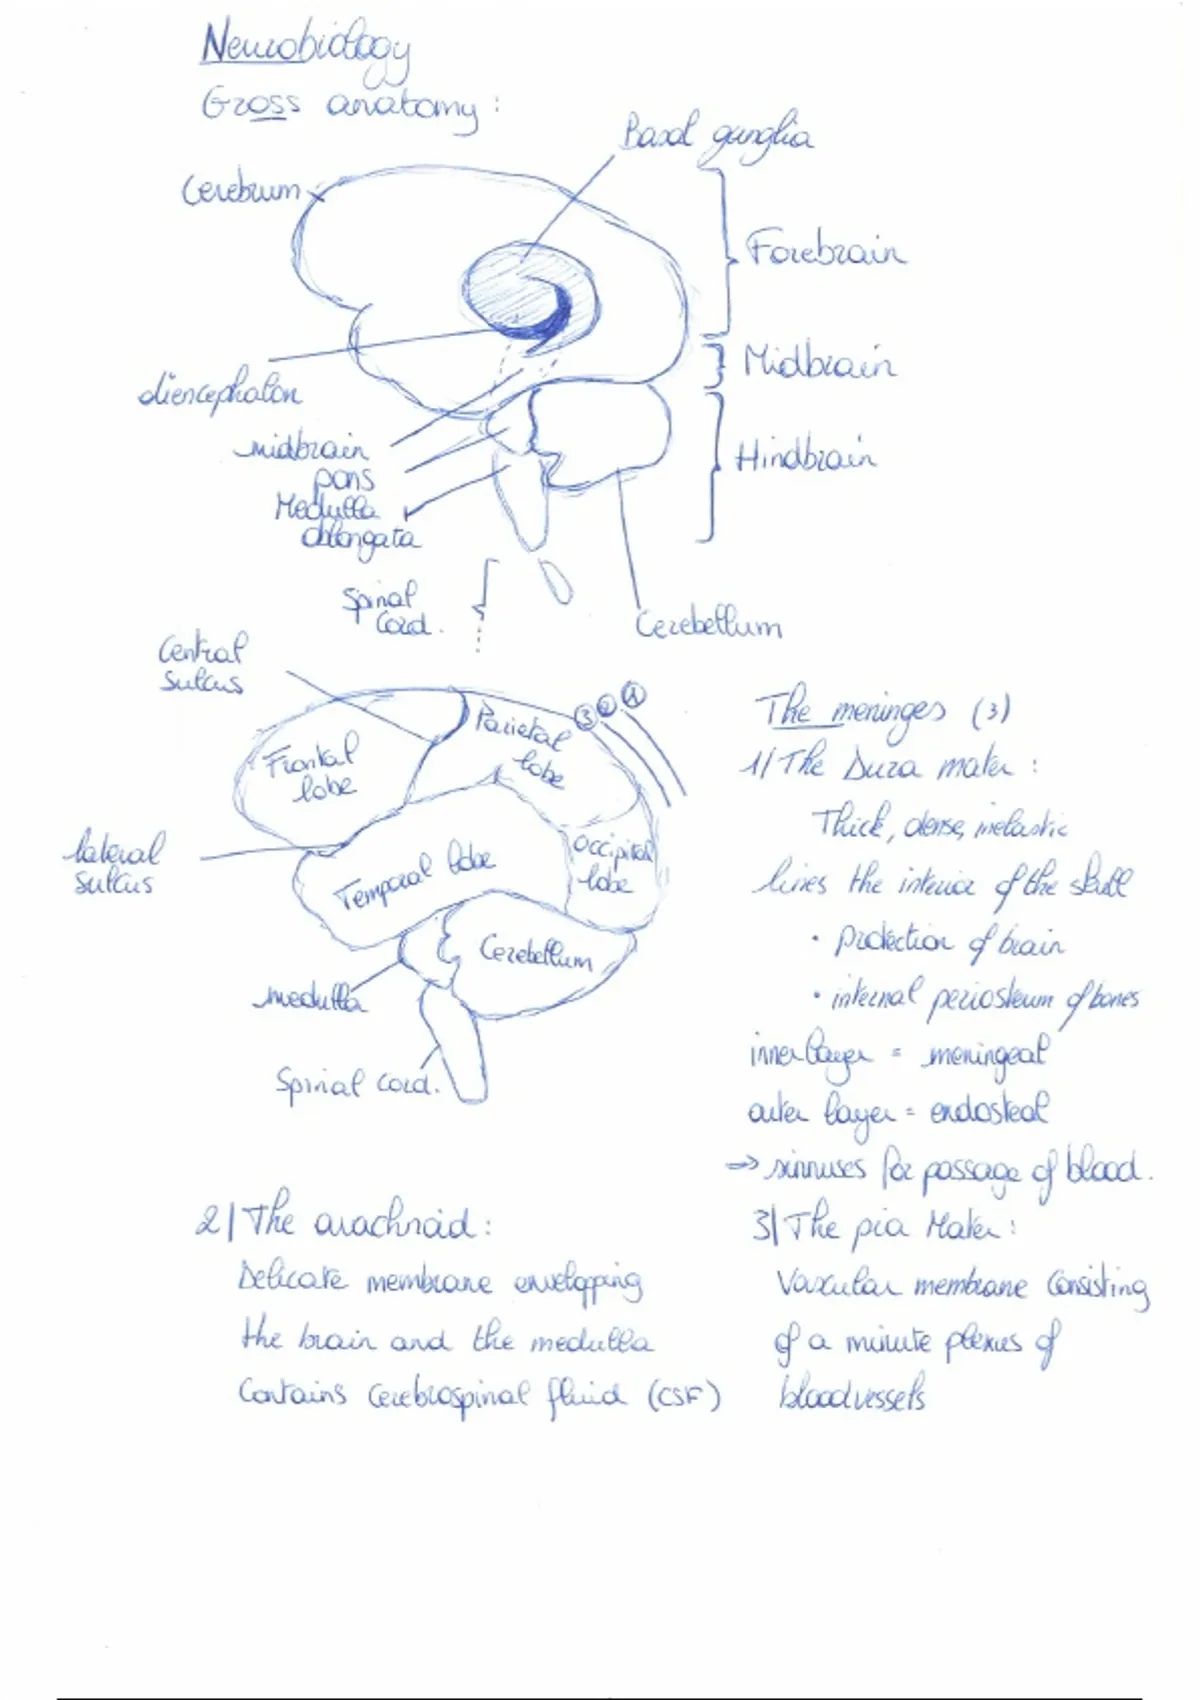 Neurobiology
Gross anatomy :
Basal ganglia
Cerebrum
Forebrain
Midbrain
diencephalon
midbrain
pons
Medulla
oblongata
Hindbrain
Spinal
Cord.
Cerebellum
Central
sulcus
3 2 1
Frontal
lobe
Parietal
lobe
lateral
sulcus
Temporal lobe
Occipital
lobe
Cerebellum
medulla
Spinal cord.
The meninges (3)
1/ The Dura mater :
Thick, dense, inelastic
lines the interior of the skull
• protection of brain
• internal periosteum of bones
inner layer = meningeal
outer layer = endosteal
=> sinnuses for passage of blood.
2/ The arachnoid :
Delicate membrane enveloping
the brain and the medulla
Contains Cerebrospinal fluid (CSF)
3/ The pia Mater :
Vascular membrane Consisting
of a minute plexus of
bloodvessels